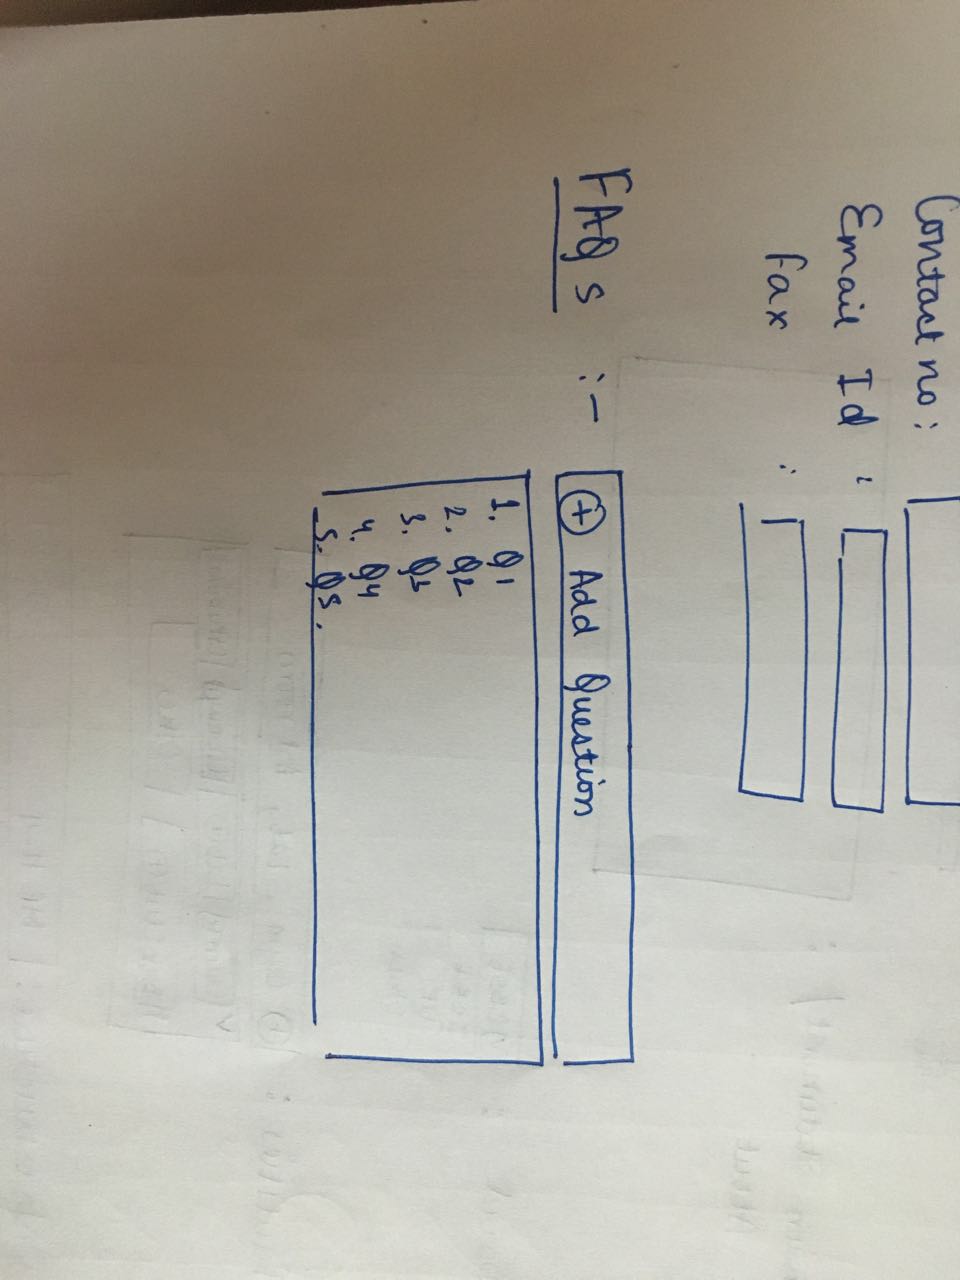 Contact no :
Email Id :
Fax :
FAQs :-
+ Add Question
1. Q1
2. Q2
3. Q3
4. Q4
5. Q5.